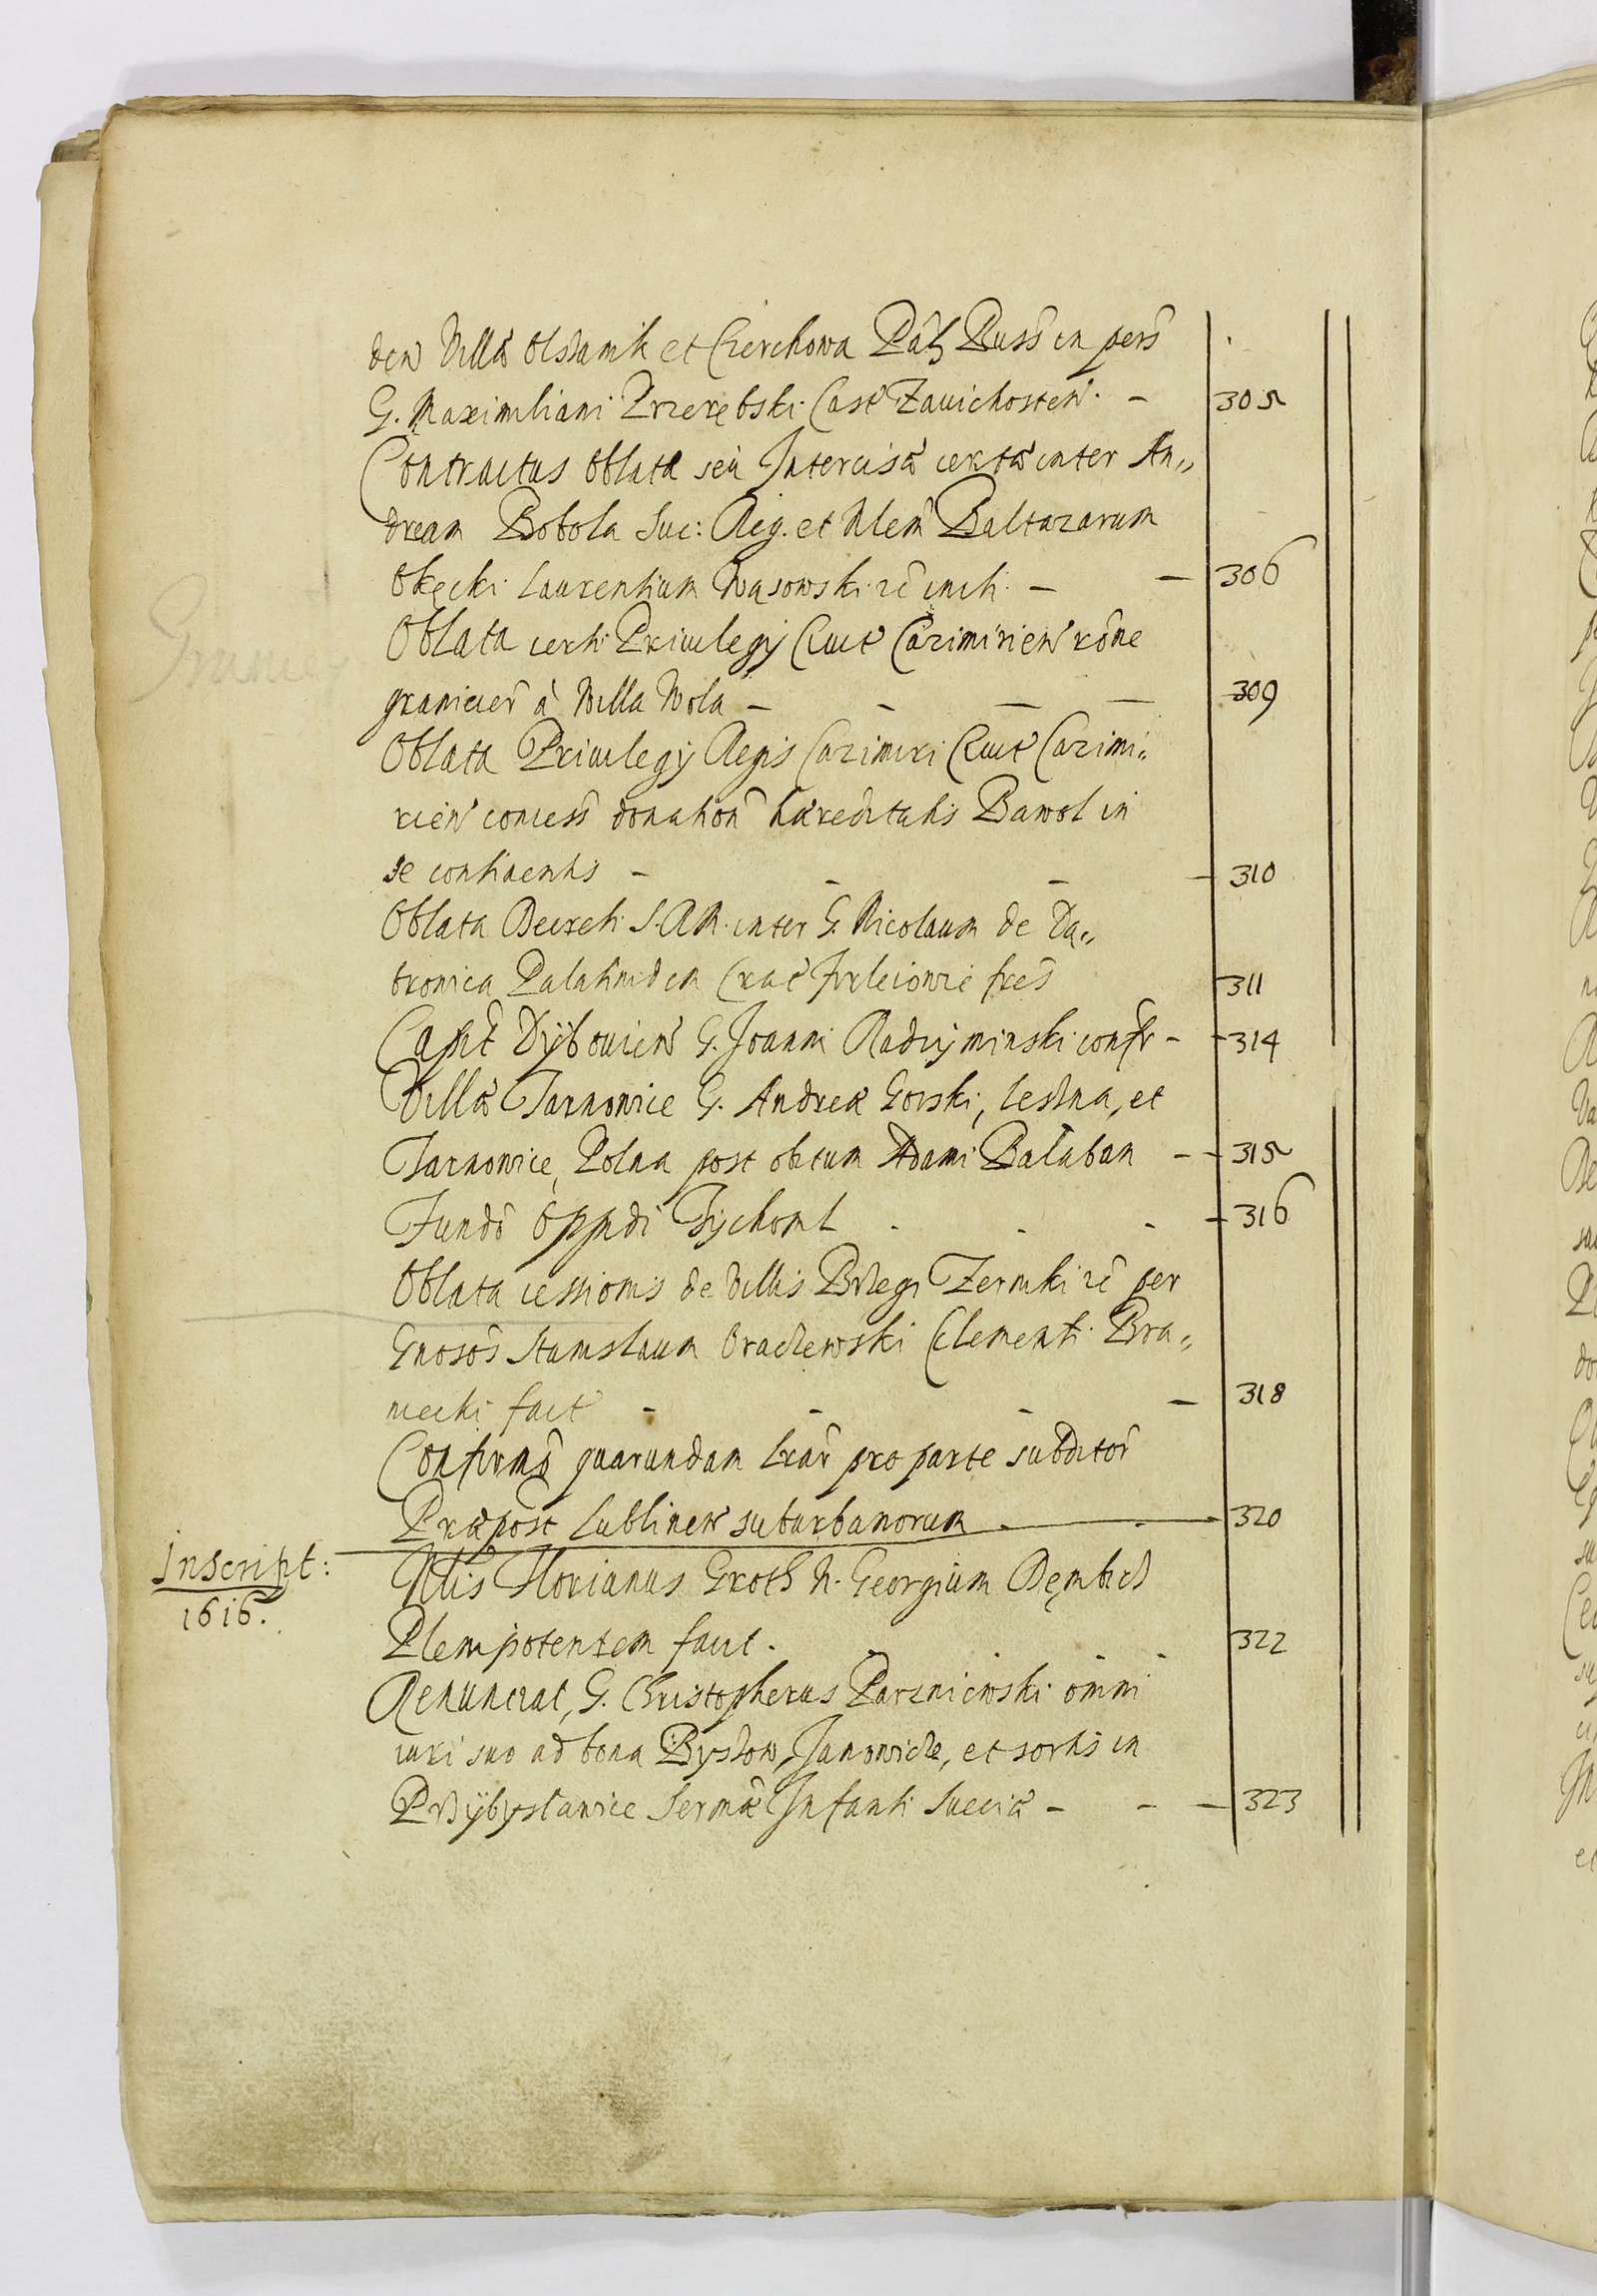 den Villæ Olszanik et Czerchowa Palat Russ in pers
G. Maximiliani Przerębski Cast Zavichosten. - 305
Contractus Oblata seu Intercisæ certæ inter An„
dream Bobola Suc: Reg. et Nlem Baltazarum
Okęcki Laurentium Wąsowski rc initi - - 306
Oblata certi Privilegÿ Civit Cazimirien rône
granicier à Villa Wola - - - - 309
Oblata Privilegÿ Regis Cazimiri Civit Cazimi„
rien concess donation hæreditatis Bawol in
se continentis - - - - 310
Oblata Decreti S.R.M. inter G. Nicolaum de Da„
bronica Palatinidem Crac Firleiowie fres 311
Capit Dÿbovien G. Joanni Radzyminski confr - 314
Villæ Tarnowice G. Andreæ Gorski, Leszna, et
Tarnowice, Polna post obitum Adami Bałaban - 315
Funds Oppidi Tÿchoml - 316
Oblata cessionis de Villis Brzegi Zerniki rc per
Gnosos Stanislaum Oraczewski Clementi Bra„
niecki fact - - - - 318
Confirmo quarundam lrar pro parte subditor
Præpost Lublinen suburbanorum - 320
Inscript:
1616.
Nlis Florianus Groth N. Georgium Dembicz
Plenipotentem facit. 322
Renunciat, G. Christopherus Parzniewski omni
iuri suo ad bona Byszow, Janowicze, et sortis in
Przÿbysławice Sermæ Infanti Sueciæ - - - 323